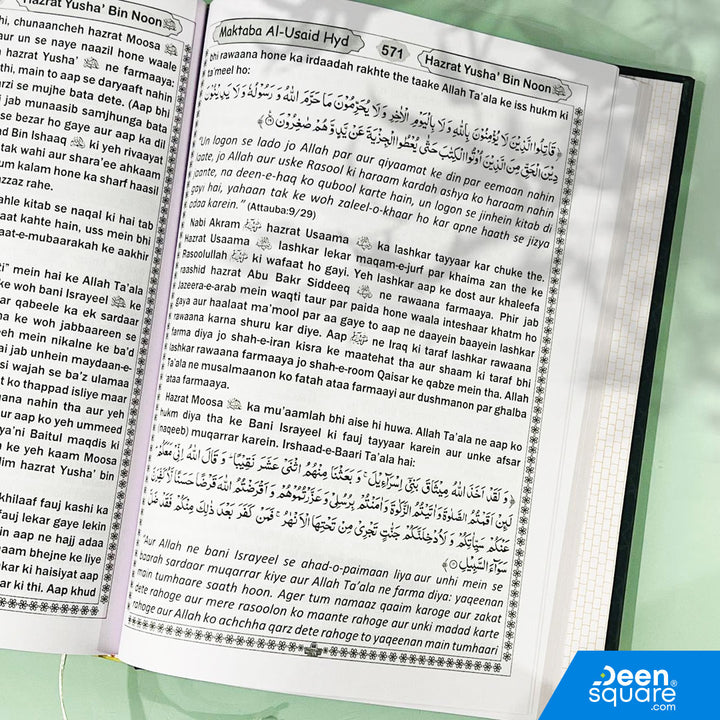 Hazrat Yusha' Bin Noon
hi, chunaancheh hazrat Moosa
aur un se naye naazil hone waale
Yusha' ne farmaaya:
thi, main to aap se daryaaft nahin
rzi se mujhe bata dete. (Aap bhi
jab munaasib samjhunga bata
se bezar ho gaye aur aap ka dil
d Bin Ishaaq ki yeh rivaayat
tak wahi aur shara'ee ahkaam
um kalam hone ka sharf haasil
zzaz rahe.
ahle kitab se naqal ki hai tab
aat kahte hain, uss mein bhi
aat-e-mubaarakah ke aakhir
ti" mein hai ke Allah Ta'ala
ke woh bani Israyeel ke
ar qabeele ka ek sardar
a ke woh jabbaareen se
eh mein nikalne ke ba'd
ai jab unhein maydaan-e-
si wajah se ba'z ulamaa
t ko thappad isliye maar
ana nahin tha aur yeh
ur aap ko yeh ummeed
ya'ni Baitul maqdis ki
n ke yeh kaam Moosa
lim hazrat Yusha' bin
khilaaf fauj kashi ka
fauj lekar gaye lekin
in aap ne hajj adaa
aam bhejne ke liye
ki haisiyat aap
ar ki thi. Aap khud
Maktaba Al-Usaid Hyd
571
Hazrat Yusha' Bin Noon
bhi rawaana hone ka irdaadah rakhte the taake Allah Ta'ala ke iss hukm ki
ta'meel ho:
﴿قَاتِلُوا الَّذِيْنَ لَا يُؤْمِنُوْنَ بِاللّٰهِ وَلَا بِالْيَوْمِ الْاٰخِرِ وَلَا يُحَرِّمُوْنَ مَا حَرَّمَ اللّٰهُ وَرَسُوْلُهٗ وَلَا يَدِيْنُوْنَ
دِيْنَ الْحَقِّ مِنَ الَّذِيْنَ اُوْتُوا الْكِتٰبَ حَتّٰى يُعْطُوا الْجِزْيَةَ عَنْ يَّدٍ وَّهُمْ صٰغِرُوْنَ﴾
"Un logon se lado jo Allah par aur qiyaamat ke din par eemaan nahin
laate, jo Allah aur uske Rasool ki haraam kardah ashya ko haraam nahin
jaante, na deen-e-haq ko qubool karte hain, un logon se jinhein kitab di
gayi hai, yahaan tak ke woh zaleel-o-khaar ho kar apne haath se jizya
adaa karein." (Attauba:9/29)
Nabi Akram ﷺ hazrat Usaama ka lashkar tayyaar kar chuke the.
Hazrat Usaama lashkar lekar maqam-e-jurf par khaima zan the ke
Rasoolullah ﷺ ki wafaat ho gayi. Yeh lashkar aap ke dost aur khaleefa
raashid hazrat Abu Bakr Siddeeq ne rawaana farmaaya. Phir jab
Jazeera-e-arab mein waqti taur par paida hone waala inteshaar khatm ho
gaya aur haalaat ma'mool par aa gaye to aap ne daayein baayein lashkar
rawaana karna shuru kar diye. Aap ﷺ ne Iraq ki taraf lashkar rawaana
farma diya jo shah-e-iran kisra ke maatehat tha aur shaam ki taraf bhi
lashkar rawaana farmaaya jo shah-e-room Qaisar ke qabze mein tha. Allah
Ta'ala ne musalmaanon ko fatah ataa farmaayi aur dushmanon par ghalba
ataa farmaaya.
Hazrat Moosa ka mu'aamlah bhi aise hi huwa. Allah Ta'ala ne aap ko
hukm diya tha ke Bani Israyeel ki fauj tayyaar karein aur unke afsar
(naqeeb) muqarrar karein. Irshaad-e-Baari Ta'ala hai:
﴿وَلَقَدْ اَخَذَ اللّٰهُ مِيْثَاقَ بَنِيْٓ اِسْرَآءِيْلَ ۚ وَبَعَثْنَا مِنْهُمُ اثْنَيْ عَشَرَ نَقِيْبًا ۗ وَقَالَ اللّٰهُ اِنِّيْ مَعَكُمْ
لَئِنْ اَقَمْتُمُ الصَّلٰوةَ وَاٰتَيْتُمُ الزَّكٰوةَ وَاٰمَنْتُمْ بِرُسُلِيْ وَعَزَّرْتُمُوْهُمْ وَاَقْرَضْتُمُ اللّٰهَ قَرْضًا حَسَنًا لَّاُكَفِّرَنَّ
عَنْكُمْ سَيِّاٰتِكُمْ وَلَاُدْخِلَنَّكُمْ جَنّٰتٍ تَجْرِيْ مِنْ تَحْتِهَا الْاَنْهٰرُ ۚ فَمَنْ كَفَرَ بَعْدَ ذٰلِكَ مِنْكُمْ فَقَدْ ضَلَّ
سَوَآءَ السَّبِيْلِ﴾
"Aur Allah ne bani Israyeel se ahad-o-paimaan liya aur unhi mein se
baarah sardaar muqarrar kiye aur Allah Ta'ala ne farma diya: yaqeenan
main tumhaare saath hoon. Ager tum namaaz qaaim karoge aur zakat
dete rahoge aur mere rasoolon ko maante rahoge aur unki madad karte
rahoge aur Allah ko achchha qarz dete rahoge to yaqeenan main tumhaari
Deen
square®
.com